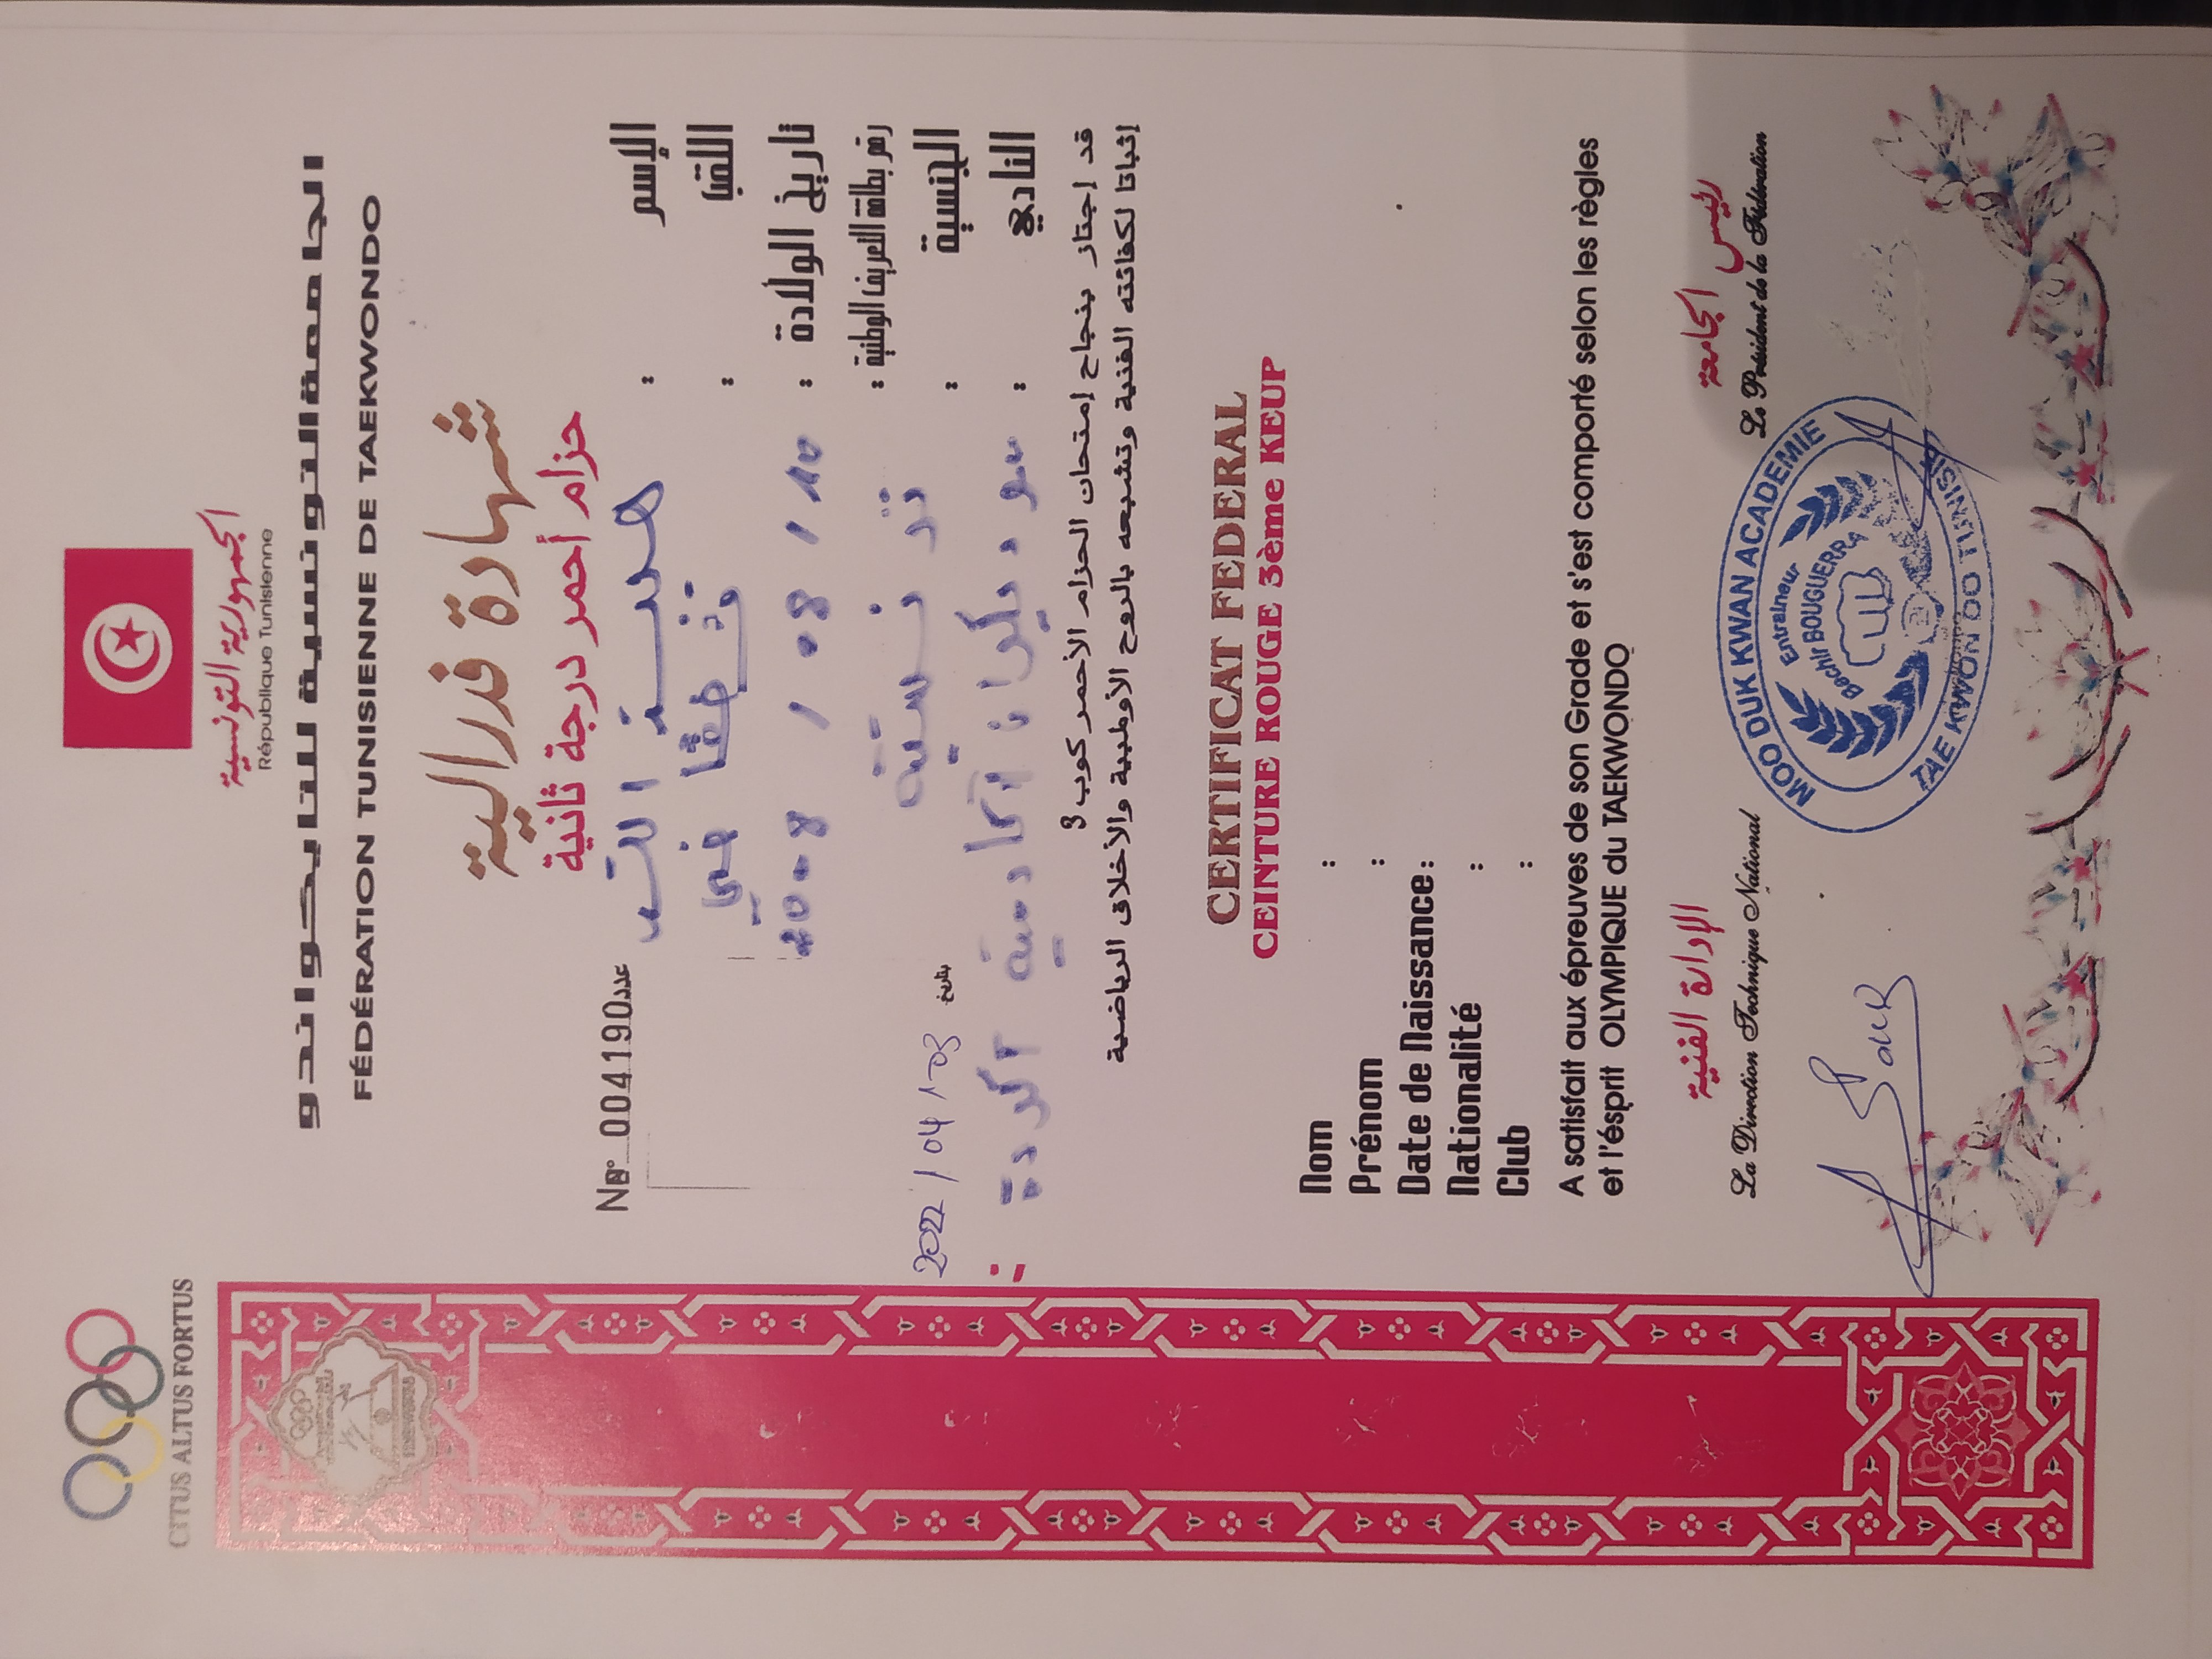 CITIUS ALTUS FORTUS
الجمهورية التونسية
République Tunisienne
الجامعة التونسية للتايكواندو
FÉDÉRATION TUNISIENNE DE TAEKWONDO
شهادة فدرالية
حزام أحمر درجة ثانية
N° 004190 عدد
الإسم : هبة الله
اللقب :
تاريخ الولادة : 10 / 08 / 2008
رقم بطاقة التعريف الوطنية :
الجنسية : تونسية
بتاريخ 2022 / 04 / 03
النادي : مودوكوان أكاديمية الكردية
قد إجتاز بنجاح إمتحان الحزام الأحمر كوب 3
إثباتا لكفائته الفنية وتشبعه بالروح الأولمبية والأخلاق الرياضية
CERTIFICAT FEDERAL
CEINTURE ROUGE 3ème KEUP
Nom :
Prénom :
Date de Naissance :
Nationalité :
Club :
A satisfait aux épreuves de son Grade et s'est comporté selon les règles
et l'ésprit OLYMPIQUE du TAEKWONDO
الإدارة الفنية
La Direction Technique National
رئيس الجامعة
Le Président de la Fédération
MOO DUK KWAN ACADEMIE
Entraineur
Bechir BOUGUERRA
TAE KWON DO TUNISIE